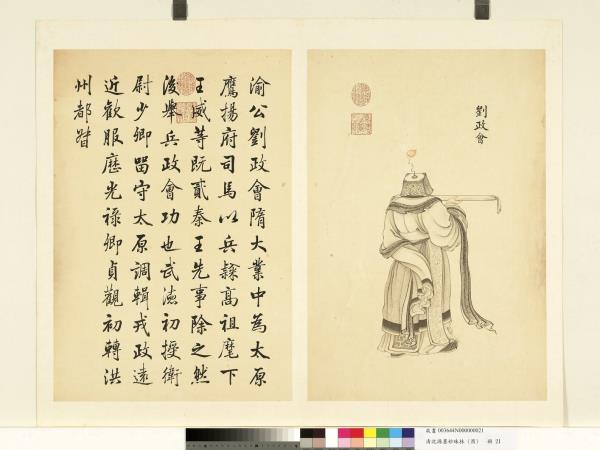 劉政會
渝公劉政會隋大業中為太原
鷹揚府司馬以兵隸高祖麾下
王威等既貳秦王先事除之然
後舉兵政會功也武德初授衛
尉少卿留守太原調輯戎政遠
近歡服歷光祿卿貞觀初轉洪
州都督
故畫 003644N000000021
清沈源墨妙珠林（酉） 冊 21